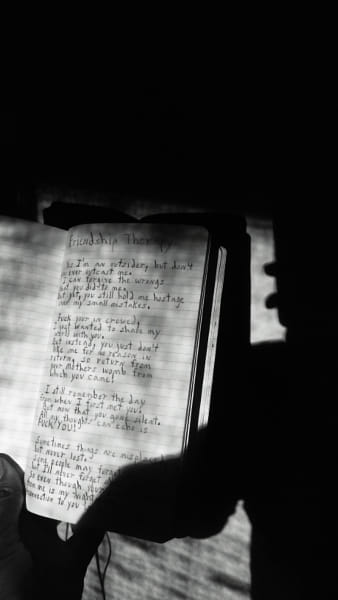 Friendship Therapy
Yes I'm an outsider, but don't
ever outcast me.
I can forgive the wrongs
that you did to me.
but yet, you still hold me hostage
over my small mistakes.
Fuck your in crowed,
I just wanted to share my
world with you.
but instead, you just don't
like me for no reason in
return, so return from
your mothers womb from
which you came!
I still remember the day
when I first met you!
But now that you gone silent.
All my thoughts can echo is
FUCK YOU!
Sometimes things are misplaced
but never lost.
Some people may forget
but I'll never forget
So even though your
from me is my
connection to you